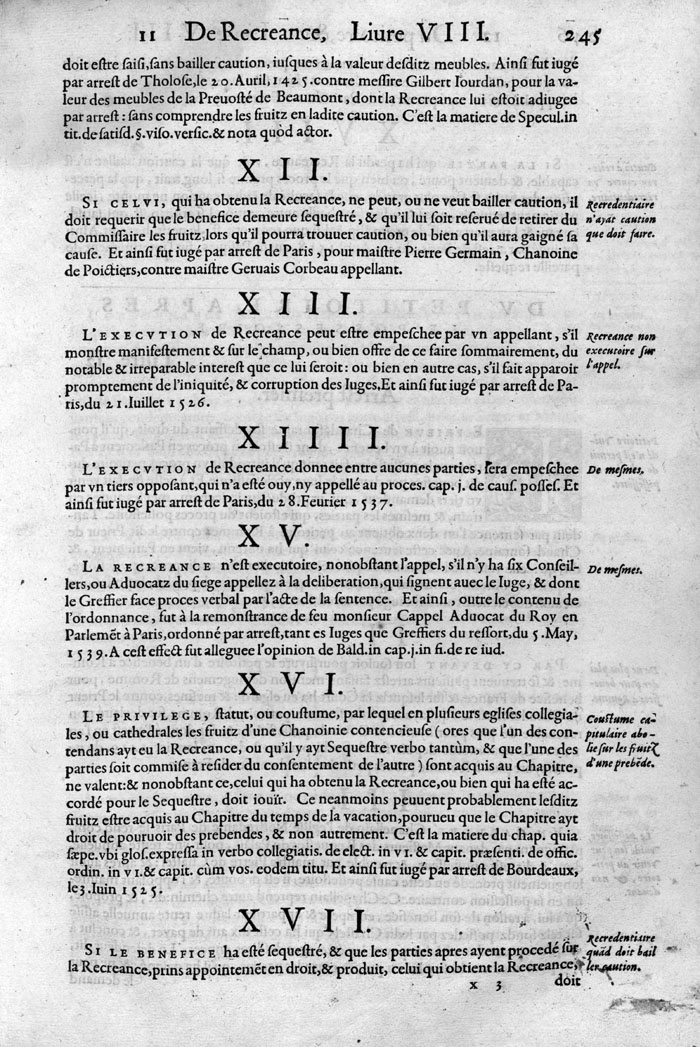 11 De Recreance, Liure VIII. 245
doit estre saisi, sans bailler caution, iusques à la valeur desditz meubles. Ainsi fut iugé
par arrest de Tholose, le 20. Auril, 1425. contre messire Gilbert Iourdan, pour la va-
leur des meubles de la Preuosté de Beaumont, dont la Recreance lui estoit adiugee
par arrest: sans comprendre les fruitz en ladite caution. C'est la matiere de Specul. in
tit. de satisd. §. viso. versic. & nota quòd actor.
XII.
SI CELVI, qui ha obtenu la Recreance, ne peut, ou ne veut bailler caution, il
doit requerir que le benefice demeure sequestré, & qu'il lui soit reserué de retirer du
Commissaire les fruitz, lors qu'il pourra trouuer caution, ou bien qu'il aura gaigné sa
cause. Et ainsi fut iugé par arrest de Paris, pour maistre Pierre Germain, Chanoine
de Poictiers, contre maistre Geruais Corbeau appellant.
Recredentiaire
n'ayāt caution
que doit faire.
XIIII.
L'EXECVTION de Recreance peut estre empeschee par vn appellant, s'il
monstre manifestement & sur le champ, ou bien offre de ce faire sommairement, du
notable & irreparable interest que ce lui seroit: ou bien en autre cas, s'il fait apparoir
promptement de l'iniquité, & corruption des Iuges. Et ainsi fut iugé par arrest de Pa-
ris, du 21. Iuillet 1526.
Recreance non
executoire sur
l'appel.
XIIIII.
L'EXECVTION de Recreance donnee entre aucunes parties, sera empeschee
par vn tiers opposant, qui n'a esté ouy, ny appellé au proces. cap. j. de caus. posses. Et
ainsi fut iugé par arrest de Paris, du 28. Feurier 1537.
De mesmes,
XV.
LA RECREANCE n'est executoire, nonobstant l'appel, s'il n'y ha six Conseil-
lers, ou Aduocatz du siege appellez à la deliberation, qui signent auec le Iuge, & dont
le Greffier face proces verbal par l'acte de la sentence. Et ainsi, outre le contenu de
l'ordonnance, fut à la remonstrance de feu monsieur Cappel Aduocat du Roy en
Parlemēt à Paris, ordonné par arrest, tant es Iuges que Greffiers du ressort, du 5. May,
1539. A cest effect fut alleguee l'opinion de Bald. in cap. j. in fi. de re iud.
De mesmes.
XVI.
LE PRIVILEGE, statut, ou coustume, par lequel en plusieurs eglises collegia-
les, ou cathedrales les fruitz d'une Chanoinie contencieuse (ores que l'un des con-
tendans ayt eu la Recreance, ou qu'il y ayt Sequestre verbo tantùm, & que l'une des
parties soit commise à resider du consentement de l'autre) sont acquis au Chapitre,
ne valent: & nonobstant ce, celui qui ha obtenu la Recreance, ou bien qui ha esté ac-
cordé pour le Sequestre, doit iouïr. Ce neanmoins peuuent probablement lesditz
fruitz estre acquis au Chapitre du temps de la vacation, pourueu que le Chapitre ayt
droit de pouruoir des prebendes, & non autrement. C'est la matiere du chap. quia
sæpe. vbi glos. expressa in verbo collegiatis. de elect. in vi. & capit. præsenti. de offic.
ordin. in vi. & capit. cùm vos. eodem titu. Et ainsi fut iugé par arrest de Bourdeaux,
le 3. Iuin 1525.
Coustume ca-
pitulaire abo-
lie sur les fruitz
d'une prebēde.
XVII.
SI LE BENEFICE ha esté sequestré, & que les parties apres ayent procedé sur
la Recreance, prins appointemēt en droit, & produit, celui qui obtient la Recreance,
Recredentiaire
quād doit bail
ler caution.
x 3 doit